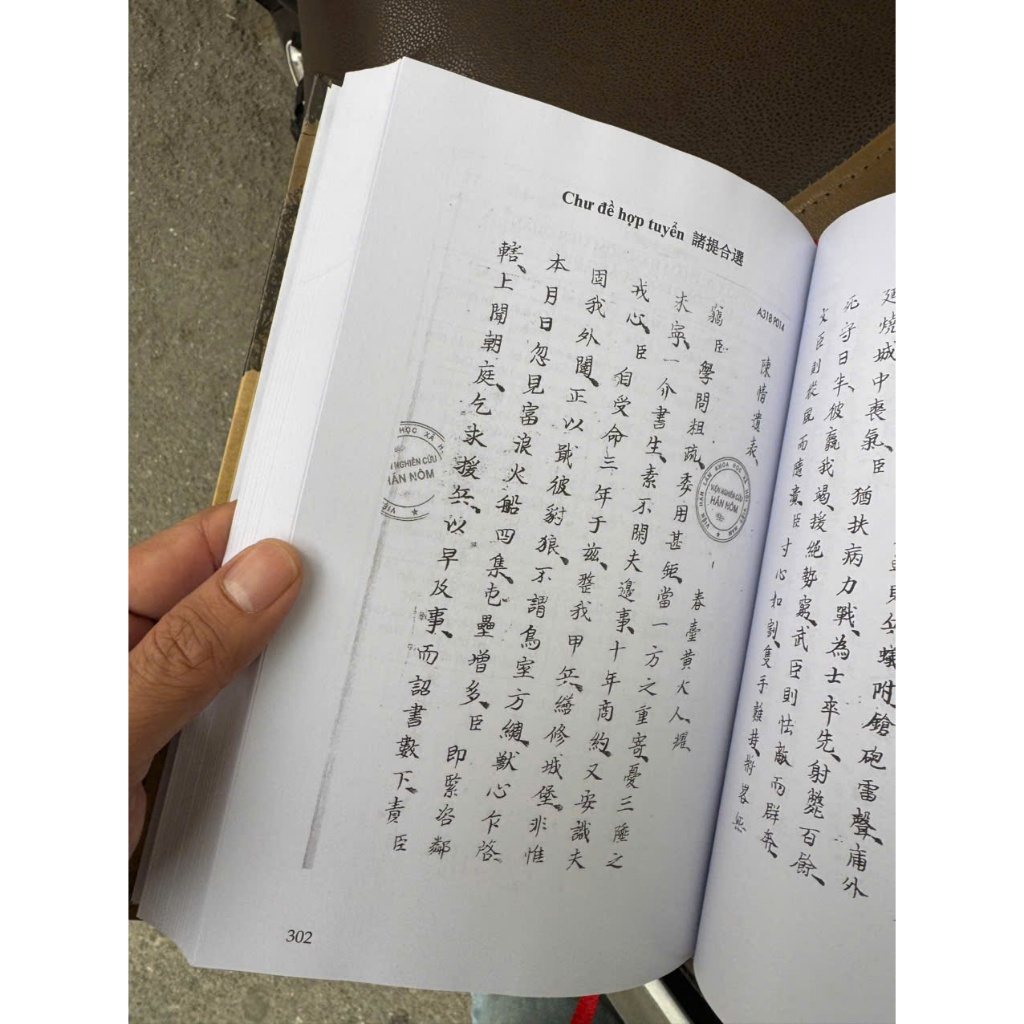 Chư đề hợp tuyển 諸提合選
A318 P014
陳情遺表
春臺黄火人耀
竊臣學問粗疏委用甚鉅當一方之重寄憂三陲之
未寧一介書生素不閑夫邊事十年商約又安識夫
戎心臣自受命三年于兹整我甲兵繕修城堡非惟
固我外圉正以戢彼豺狼不謂鳥室方綢獸心乍啓
本月日忽見富浪火船四集屯壘增多臣即緊咨鄰
轄上聞朝庭乞求援兵以早及事而詔書數下責臣
兵蟻附鎗砲雷聲庸外
延燒城中喪氣臣猶扶病力戰為士卒先射斃百餘
死守日半彼羸我竭援絶勢窮武臣則怯敵而群奔
文臣則從風而應責臣寸心如割隻手難
VIỆN HÀN LÂM KHOA HỌC XÃ HỘI VIỆT NAM
VIỆN NGHIÊN CỨU
HÁN NÔM
HỌC XÃ H
NGHIÊN CỨU
HÁN NÔM
302